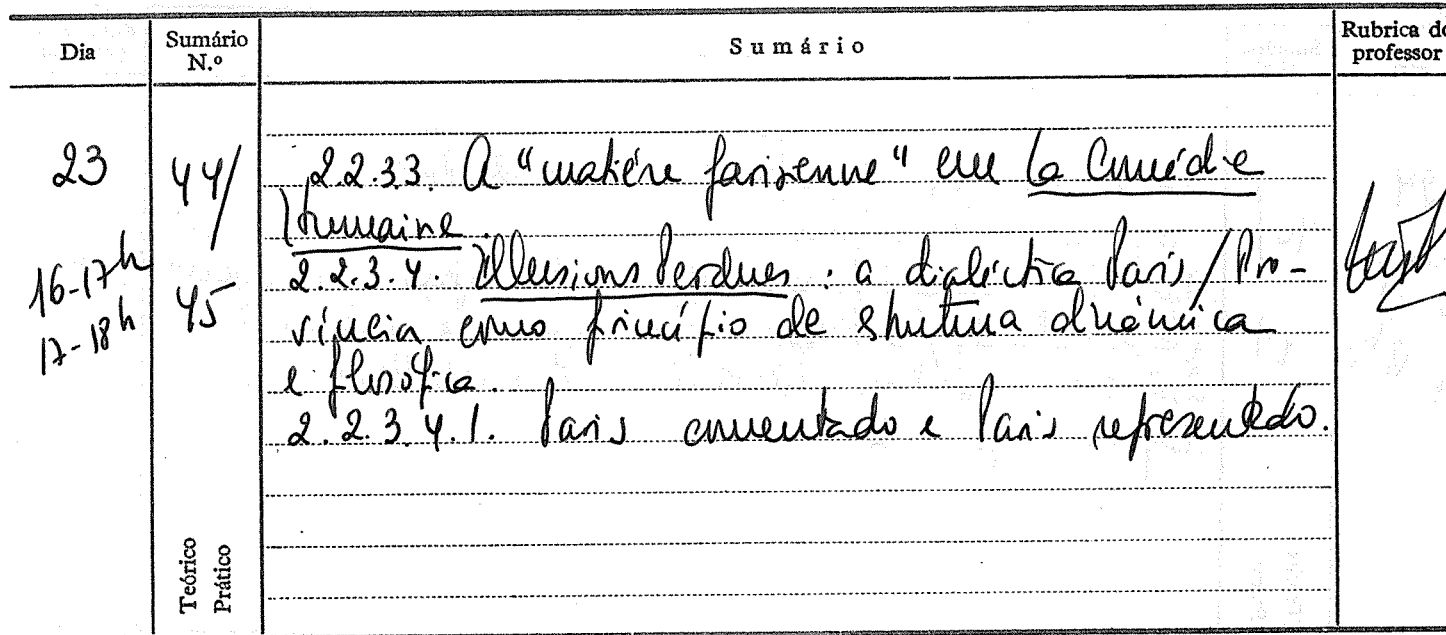 Dia
Sumário N.º
Sumário
Rubrica do professor
23
44/
45
16-17h
17-18h
2.2.3.3. A "matière parisienne" em La Comédie
Humaine.
2.2.3.4. Illusions Perdues : a dialéctica Paris / Pro-
víncia como princípio de estrutura dinâmica
e filosófica.
2.2.3.4.1. Paris comentado e Paris representado.
Teórico
Prático